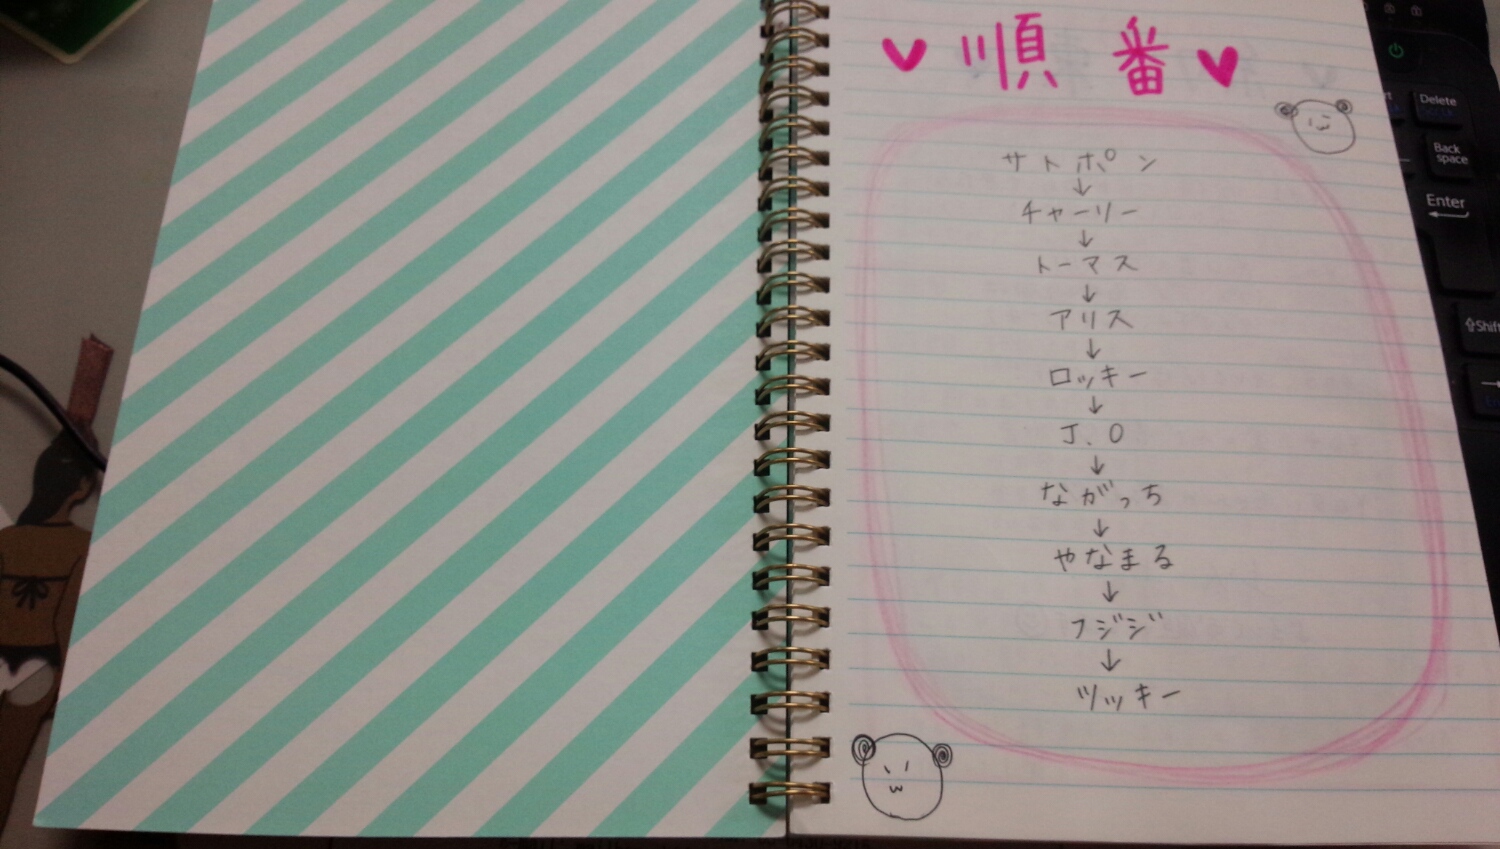 ♥ 順番 ♥
サトポン
↓
チャーリー
↓
トーマス
↓
アリス
↓
ロッキー
↓
J.O
↓
ながっち
↓
やなまる
↓
フジジ
↓
ツッキー
Delete
Back space
Enter
⇧Shift